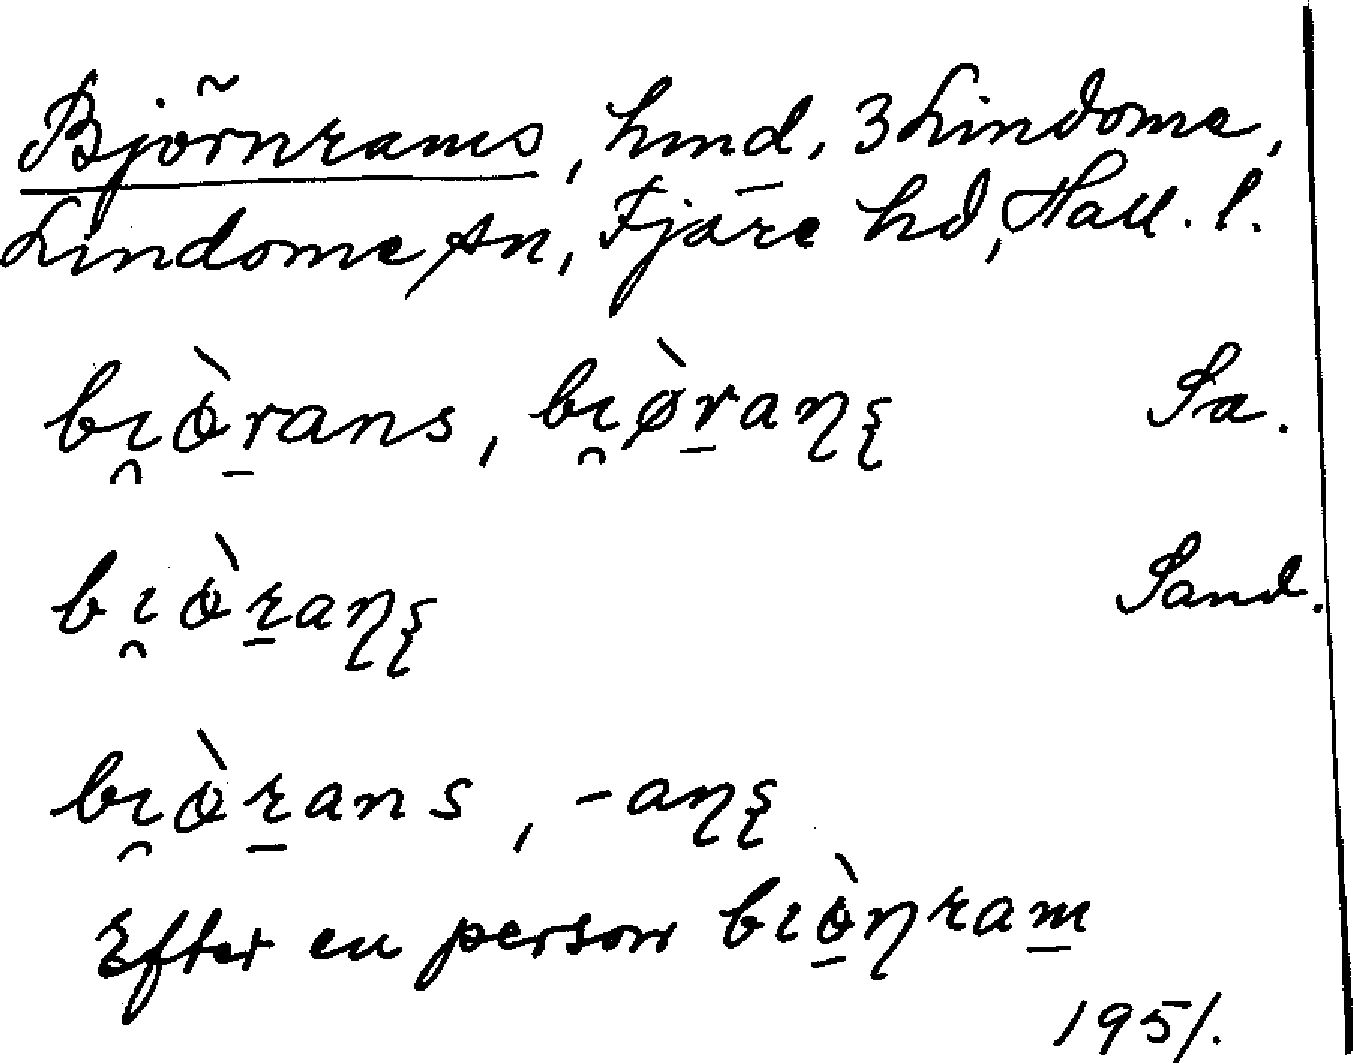 Björnrams, hmd, 3 Lindome,
Lindome sn, Fjäre hd, Hall. l.
bɩ̯ò̱rans, bɩ̯ø̀ṟaɳȿ Sa.
bɩ̯òṟaɳȿ Sand.
bɩ̯òṟans, -aɳȿ
Efter en person bɩò̱ɳram̱
1951.